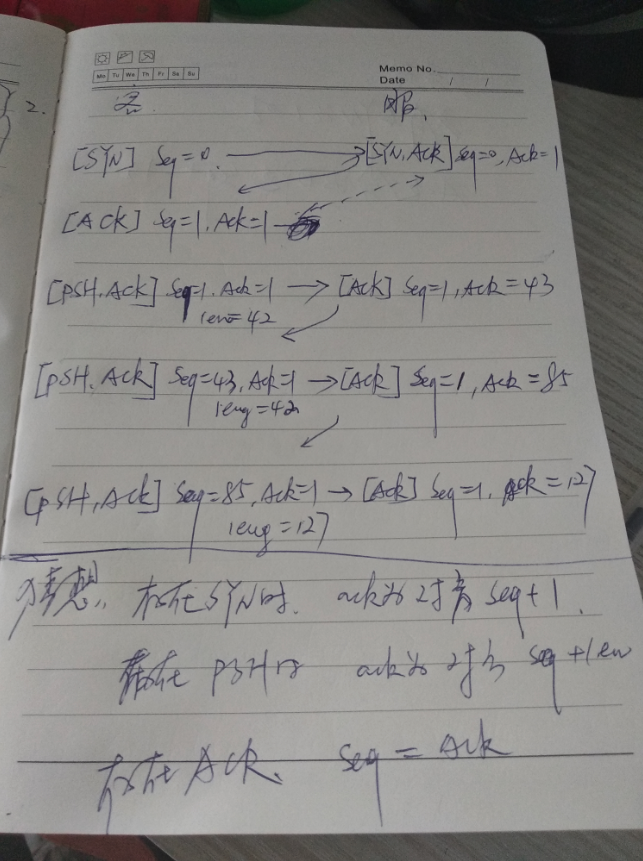 Mo Tu We Th Fr Sa Su
Memo No.
Date / /
2.
服.
[SYN] Seq=0. [SYN, Ack] Seq=0, Ack=1
[ACK] Seq=1. Ack=1
[PSH. Ack] Seq=1. Ack=1 → [Ack] Seq=1, Ack=43
len=42
[PSH. Ack] Seq=43, Ack=1 → [Ack] Seq=1, Ack=85
leng=42
[PSH, Ack] Seq=85, Ack=1 → [Ack] Seq=1. Ack=127
leng=127
猜想: 存在SYN时. ack为对方 seq+1.
存在 PSH时 ack为对方 seq+len
存在ACK. seq = Ack